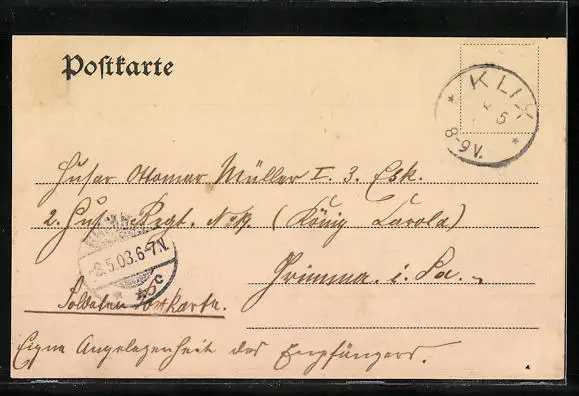 Postkarte
KLIX
5
8-9V.
Husar Ottomar Müller I. 3. Esk.
2. Hus. Regt. No 19. (König Carola)
Grimma. i. Sa.
3.5.03.6-7N.
*b c
Soldaten Postkarte.
Eigne Angelegenheit des Empfängers.